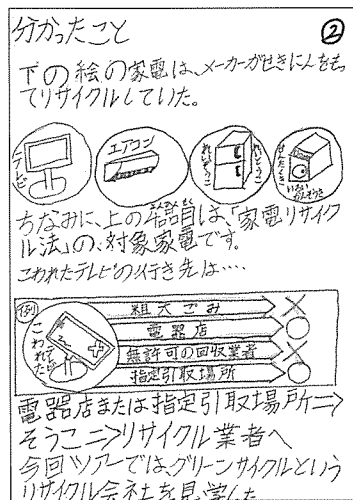 分かったこと
②
下の絵の家電は、メーカーがせきにんをもっ
てリサイクルしていた。
テレビ
エアコン
れいぞうこ
れいとうこ
せんたくき
いるい
かんそうき
ちなみに、上の家電は、「家電リサイク
ル法」の、対象家電です。
こわれたテレビの行き先は‥‥
例
こわれてたら
粗大ごみ ×
電器店 ○
無許可の回収業者 ×
指定引取場所 ○
電器店または指定引取場所⇒
そうこ⇒リサイクル業者へ
今回ツアーでは、グリーンサイクルという
リサイクル会社を見学した